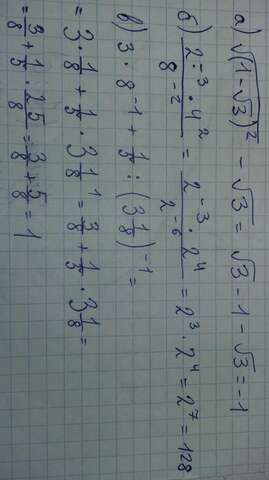 а) √(1-√3)² - √3 = √3 - 1 - √3 = -1
б) (2⁻³ · 4²)/(8⁻²) = (2⁻³ · 2⁴)/(2⁻⁶) = 2³ · 2⁴ = 2⁷ = 128
в) 3 · 8⁻¹ + 1/5 : (3 1/8)⁻¹ =
= 3 · 1/8 + 1/5 · 3 1/8¹ = 3/8 + 1/5 · 3 1/8 =
= 3/8 + 1/5 · 25/8 = 3/8 + 5/8 = 1